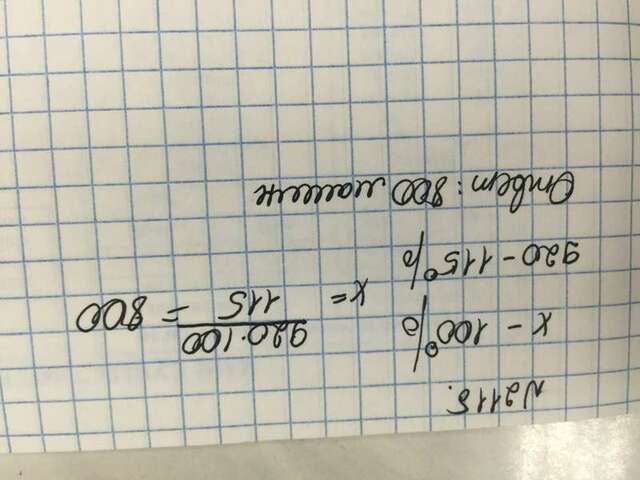 №2115.
x - 100%
920 - 115%
x = 920·100 / 115 = 800
Ответ: 800 машин